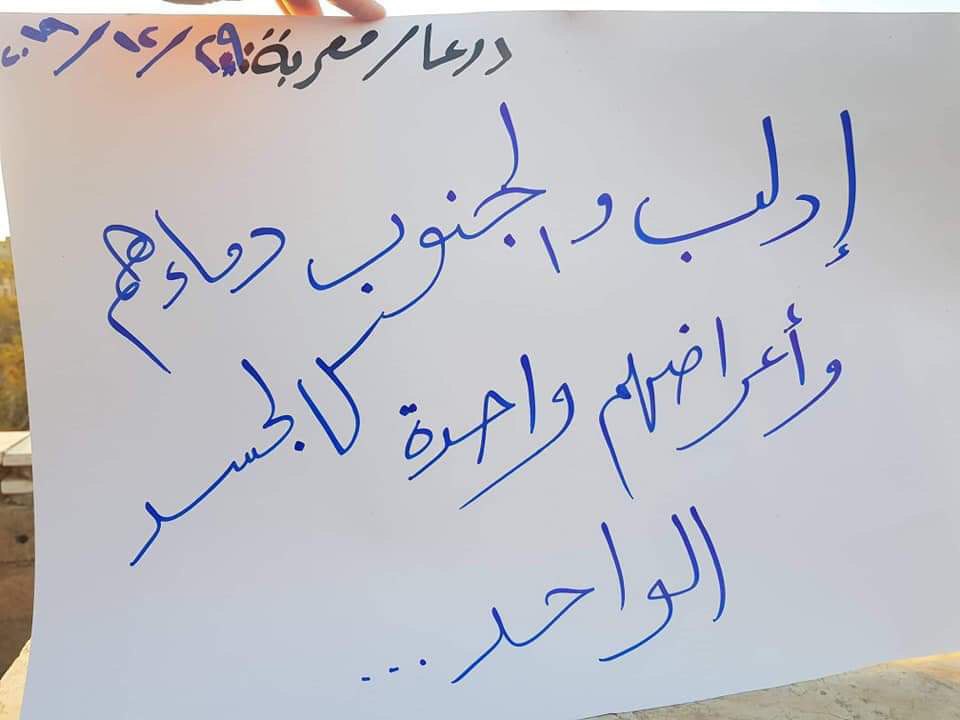 درعا/معربة: ٢٩/١٢/٢٠١٩
إدلب والجنوب دماءهم
وأعراضهم واحدة كالجسد
الواحد...